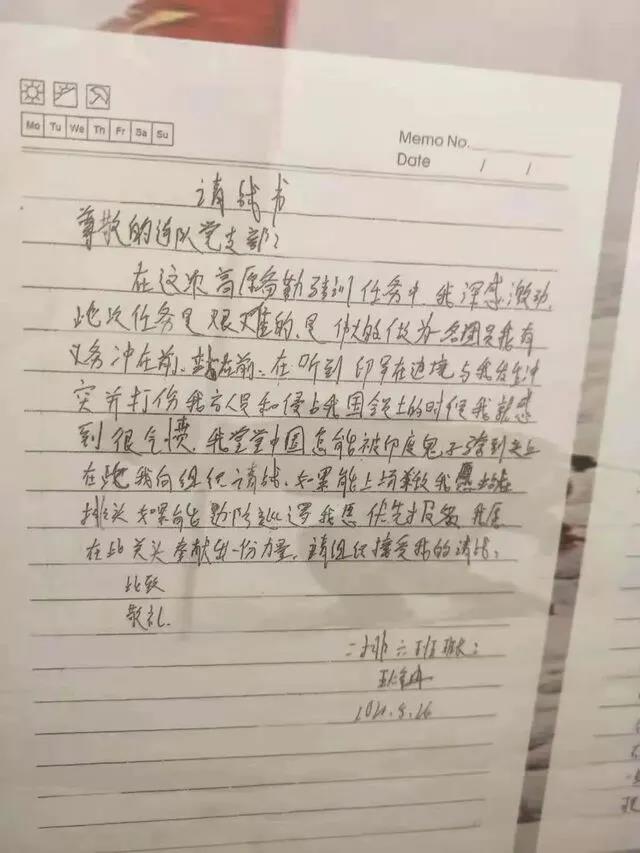 Mo Tu We Th Fr Sa Su
Memo No.
Date / /
请战书
尊敬的连队党支部:
在这次高原备勤驻训任务中,我深感激动,
此次任务是艰难的,是伟大的做为名团员我有
义务冲在前、站在前、在听到印军在边境与我发生冲
突并打伤我方人员和侵占我国领土的时候我就感
到很气愤,我堂堂中国怎能被印度鬼子
在此我向组织请战,如果能上场杀敌我愿站在
排头如果能出勤 巡逻我愿 我愿
在此关头奉献出一份力量,请组织接受我的请战:
此致
敬礼.
二排六班 :